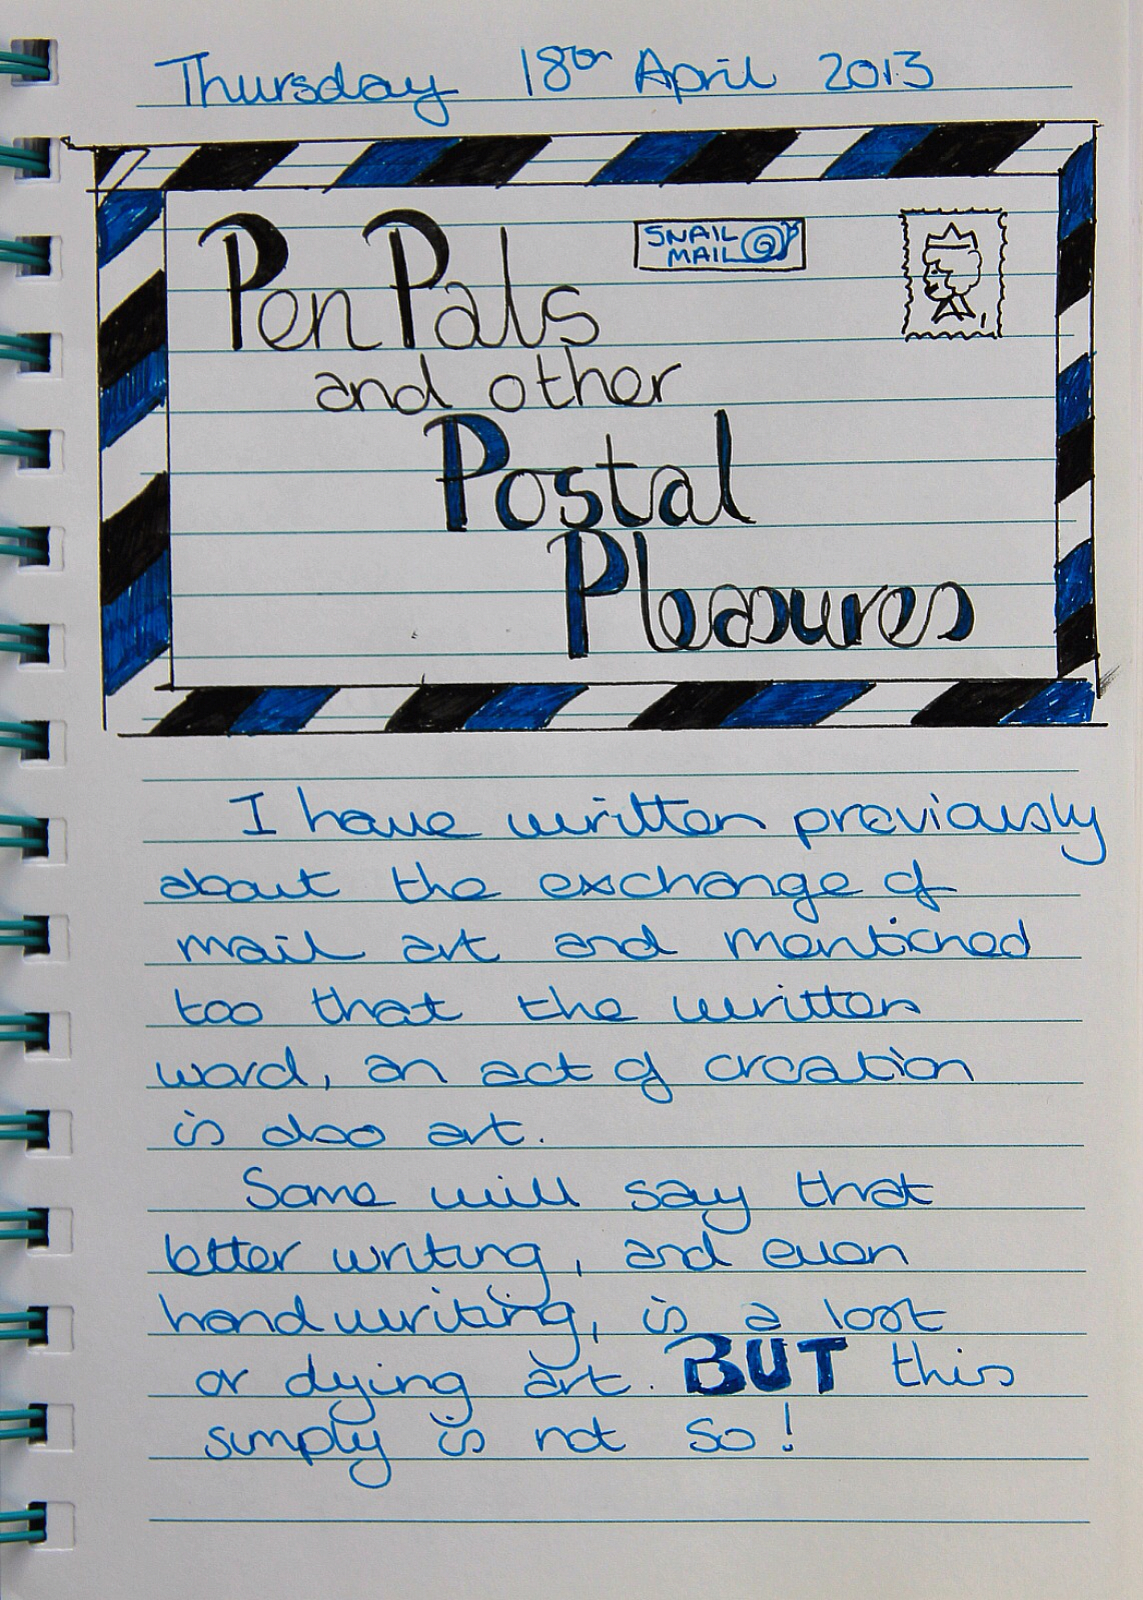 Thursday 18th April 2013
SNAIL
MAIL
Pen Pals
and other
Postal
Pleasures
I have written previously
about the exchange of
mail art and mentioned
too that the written
word, an act of creation
is also art.
Some will say that
letter writing, and even
handwriting, is a lost
or dying art. BUT this
simply is not so!